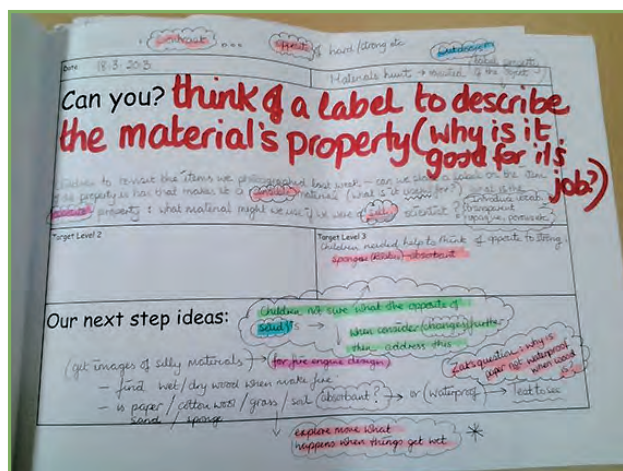 opposite of hard/strong etc
Date 18·3·2013
Materials hunt →
of the object
Can you? think of a label to describe
the material's property (why is it
good for it's
job?)
Children to revisit the items we photographed last week - can we place a label on the item
property is has that makes it a material (what is it useful for?) what is the
property : what material might we use if we were a silly scientist?
Introduce vocab:
transparent
opaque,
Target Level 2
Target Level 3
Children needed help to think of opposite to strong.
sponges absorbant
Children not sure what the opposite of
solid is → when consider changes further
then address this
Our next step ideas:
(get images of silly materials → for fire engine design)
- find wet/dry wood when make fire
- is paper / cotton wool / grass / soil (absorbant?) → or (waterproof) → test to see
sand / sponge
Zak's question: why is
paper not waterproof
when wood
is?
explore more what
happens when things get wet